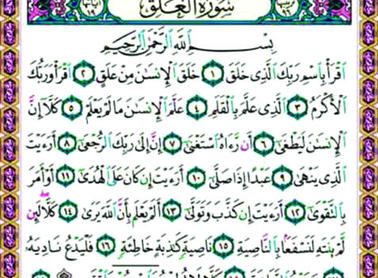 سُورَةُ العَلَقِ
بِسْمِ اللَّهِ الرَّحْمَٰنِ الرَّحِيمِ
اقْرَأْ بِاسْمِ رَبِّكَ الَّذِي خَلَقَ ١ خَلَقَ الْإِنسَٰنَ مِنْ عَلَقٍ ٢ اقْرَأْ وَرَبُّكَ
الْأَكْرَمُ ٣ الَّذِي عَلَّمَ بِالْقَلَمِ ٤ عَلَّمَ الْإِنسَٰنَ مَا لَمْ يَعْلَمْ ٥ كَلَّا إِنَّ
الْإِنسَٰنَ لَيَطْغَىٰ ٦ أَن رَّءَاهُ اسْتَغْنَىٰ ٧ إِنَّ إِلَىٰ رَبِّكَ الرُّجْعَىٰ ٨ أَرَءَيْتَ
الَّذِي يَنْهَىٰ ٩ عَبْدًا إِذَا صَلَّىٰ ١٠ أَرَءَيْتَ إِن كَانَ عَلَى الْهُدَىٰ ١١ أَوْ أَمَرَ
بِالتَّقْوَىٰ ١٢ أَرَءَيْتَ إِن كَذَّبَ وَتَوَلَّىٰ ١٣ أَلَمْ يَعْلَم بِأَنَّ اللَّهَ يَرَىٰ ١٤ كَلَّا لَئِن
لَّمْ يَنتَهِ لَنَسْفَعًا بِالنَّاصِيَةِ ١٥ نَاصِيَةٍ كَٰذِبَةٍ خَاطِئَةٍ ١٦ فَلْيَدْعُ نَادِيَهُ